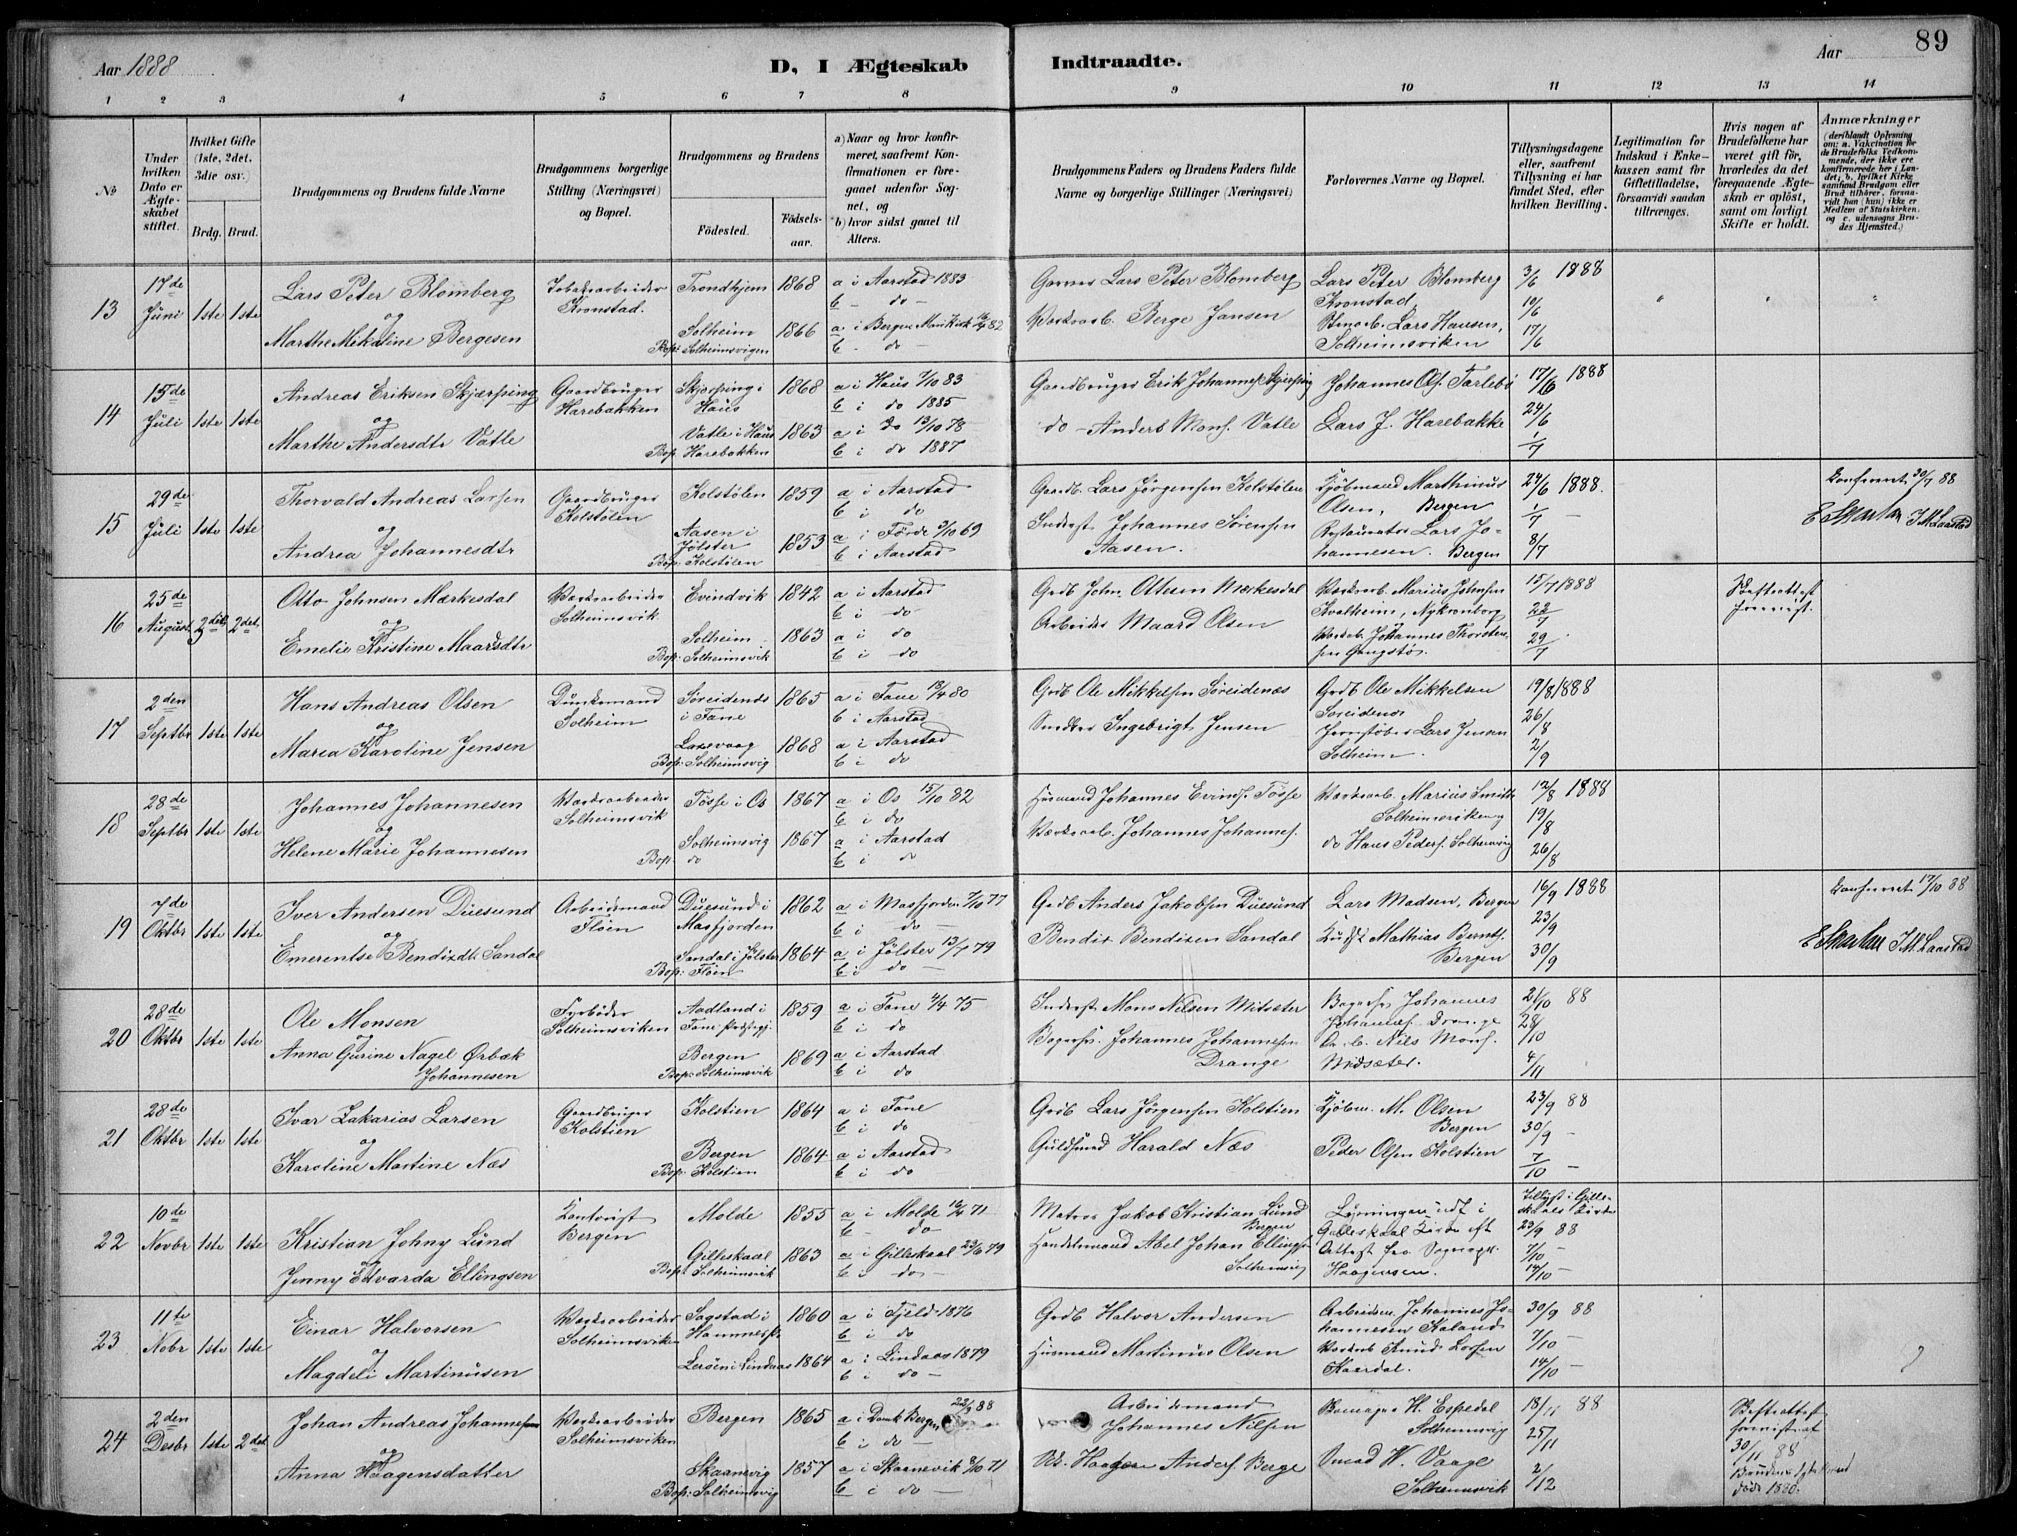 Aar 1888
D, I Ægteskab Indtraadte.
Aar 89
1 2 3 4 5 6 7 8 9 10 11 12 13 14
№
Under hvilken Dato er Ægteskabet stiftet.
Hvilket Gifte (1ste, 2det, 3die osv.)
Brdg. Brud.
Brudgommens og Brudens fulde Navne
Brudgommens borgerlige Stilling (Næringsvei) og Bopæl.
Brudgommens og Brudens
Fødested.
Fødselsaar.
a) Naar og hvor konfirmeret, saafremt Konfirmationen er foregaaet udenfor Sognet, og
b) hvor sidst gaaet til Alters.
Brudgommens Faders og Brudens Faders fulde Navne og borgerlige Stillinger (Næringsvei)
Forlovernes Navne og Bopæl.
Tillysningsdagene eller, saafremt Tillysning ei har fundet Sted, efter hvilken Bevilling.
Legitimation for Indskud i Enkekassen samt for Giftetilladelse, forsaavidt saadan tiltrænges.
Hvis nogen af Brudefolkene har været gift før, hvorledes da det foregaaende Ægteskab er opløst, samt om lovligt Skifte er holdt.
Anmærkninger
(deriblandt Oplysning om: a. Vakcination for de Brudefolks Vedkommende, der ikke ere konfirmerede her i Landet, b. hvilket Kirkesamfund Brudgom eller Brud tilhører, forsaavidt han (hun) ikke er Medlem af Statskirken, og c. udensogns Brudes Hjemsted.)
13 17de Juni 1ste 1ste
Lars Peter Blomberg
og
Marthe Mikaline Bergesen
Kronstad.
Trondhjem 1868
Solheim 1866
Bop: Solheimsvigen
a i Aarstad 1883
b - do -
a i Bergen
b - do -
Lars Peter Blomberg
Berge Jansen
Lars Peter Blomberg
Kronstad
Lars Hansen,
Solheimsviken
3/6 1888
10/6
17/6
14 15de Juli 1ste 1ste
Andreas Eriksen Skjærping
og
Marthe Andersdtr Vatle
Gaardbruger
Harebakken
Skjærping i Haus 1868
Vatle i Haus 1863
Bop: Harebakken
a i Haus 7/10 83
b i do 1885
a i do 13/10 78
b i do 1887
Gaardbruger Erik Johannes. Skjerping
do - Anders Mons. Vatle
Johannes Ols. Tarlebø
Lars J. Harebakke
17/6 1888
24/6
1/7
15 29de Juli 1ste 1ste
Thorvald Andreas Larsen
og
Andrea Johannesdtr
Gaardbruger
Kolstølen
Kolstølen 1859
Aasen i Jølster 1853
Bop: Kolstølen
a i Aarstad
b i do
a i Førde 3/10 69
b i Aarstad
Gaardb. Lars Jørgensen Kolstølen
Inderst Johannes Sørensen
Aasen.
Kjøbmand Marthinus
Olsen, Bergen
Lars Johannesen. Bergen
24/6 1888.
1/7
8/7
Konfereret 30/7 88
16 25de August 2det 2det
Otto Johnsen Mærkesdal
og
Emelie Kristine Maarsdtr
Værksarbeider
Solheimsvik
Evindvik 1842
Solheim 1863
Bop: Solheimsvik
a i Aarstad
b i do
a i do
b i do
Grdb John Ottesen Mærkesdal
Arbeider Maard Olsen
Værksarb. Marius Johnsen
Svalheim, Nykronborg
Værksb. Johannes Thorstensen
15/7 1888
22/7
29/7
Skifteattest
forevist.
17 2den Septbr 1ste 1ste
Hans Andreas Olsen
og
Maria Karoline Jensen
Solheim
Søreidenes i Fane 1865
Laxevaag 1868
Bop: Solheimsvig
a i Fane 18/4 80
b i Aarstad
a i Aarstad
b i do
Grdb Ole Mikkelsen Søreidenæs
Snedker Ingebrigt Jensen
Grdb Ole Mikkelsen
Søreidenes
Jernstøber Lars Jensen
Solheim
19/8 1888
26/8
2/9
18 28de Septbr 1ste 1ste
Johannes Johannesen
og
Helene Marie Johannesen
Værksarbeider
Solheimsvik
Tøsse i Os 1867
Solheimsvig 1867
Bop: do
a i Os 15/10 82
b i do
a i Aarstad
b i do
Husmand Johannes Evinds. Tøsse
Værksarb. Johannes Johannes.
Værksarb. Marius Smitt
Solheimsviken
do Hans Peders. Solheimsvig
12/8 1888
19/8
26/8
19 7de Oktbr 1ste 1ste
Iver Andersen Duesund
og
Emerentse Bendixdtr Sandal
Arbeidsmand
Fløen
Duesund i Masfjorden 1862
Sandal i Jølster 1864
Bop: Fløen
a i Masfjorden 7/10 77
b i do -
a i Jølster 13/7 79
b i do -
Grdb Anders Jakobsen Duesund
Bendix Bendixen Sandal
Lars Madsen, Bergen
Mathias Bernts.
Bergen
16/9 1888
23/9
30/9
Konfereret 17/10 88
20 28de Oktbr 1ste 1ste
Ole Monsen
og
Anna Gurine Nagel Ørbæk
Johannesen
Fyrbøder
Solheimsviken
Aadland i Fane Præstegj. 1859
Bergen 1869
Bop: Solheimsvik
a i Fane 4/4 75
b i do
a i Aarstad
b i do
Inderst Mons Nilsen Mitsæter
Johannes Johannesen
Drange
Johannes
Johannes. Drange
Nils Mons.
Midsæter.
21/10 88
28/10
4/11
21 28de Oktbr 1ste 1ste
Ivar Zakarias Larsen
og
Karoline Martine Næs
Gaardbruger
Kolstien
Kolstien 1864
Bergen 1864
Bop: Kolstien
a i Fane
b i do
a i Aarstad
b i do
Grdb Lars Jørgensen Kolstien
Guldsmed Harald Næs
Kjøbm. M. Olsen
Bergen
Peder Olsen Kolstien
23/9 88
30/9 -
7/10 -
22 10de Novbr 1ste 1ste
Kristian Johny Lund
og
Jenny Edvarda Ellingsen
Kontorist
Bergen
Molde 1855
Gilleskaal 1863
Bop: Solheimsvik
a i Molde 16/4 71
b - do -
a i Gilleskaal 23/6 79
b i do -
Matros Jakob Kristian Lund
Bergen
Handelsmand Abel Johan Ellings.
Solheimsvig
Lysningen udt i
Gilleskaal Kirke eft
Attest fra Sognepr.
Haagensen.
Tillyst i Gilleskaals Kirke
23/9 88
7/10 -
14/10 -
23 11te Nobr 1ste 1ste
Einar Halvorsen
og
Magdeli Martinusen
Værksarbeider
Solheimsviken
Sagstad i Hammersp. 1860
Lerøen i Lindaas 1864
a i Fjeld 1876
b i do
a i Lindaas 1879
b i do -
Grdb Halvor Andersen
Husmand Martinus Olsen
Arbeidsm. Johannes Johannesen Kaland
Værksb Amund Larsen
Haardal.
30/9 88
7/10 -
14/10 -
24 2den Desbr 1ste 2det
Johan Andreas Johannesen
og
Anna Haagensdatter
Værksarbeider
Solheimsviken
Bergen 1865
Skaanevig 1857
Bop: Solheimsvig
a i Domk Bergen 22/9 88
b i do -
a i Skaanevik 8/10 71
b i do -
Arbeidsmand
Johannes Nilsen
Haagen Anders. Berge
H. Espedal
Solheimsvig
W. Vaage
Solheimsvik
18/11 88
25/11
2/12
Skifteattest
forevist af
30/11 88
Brudens Egtemand
døde 1880.